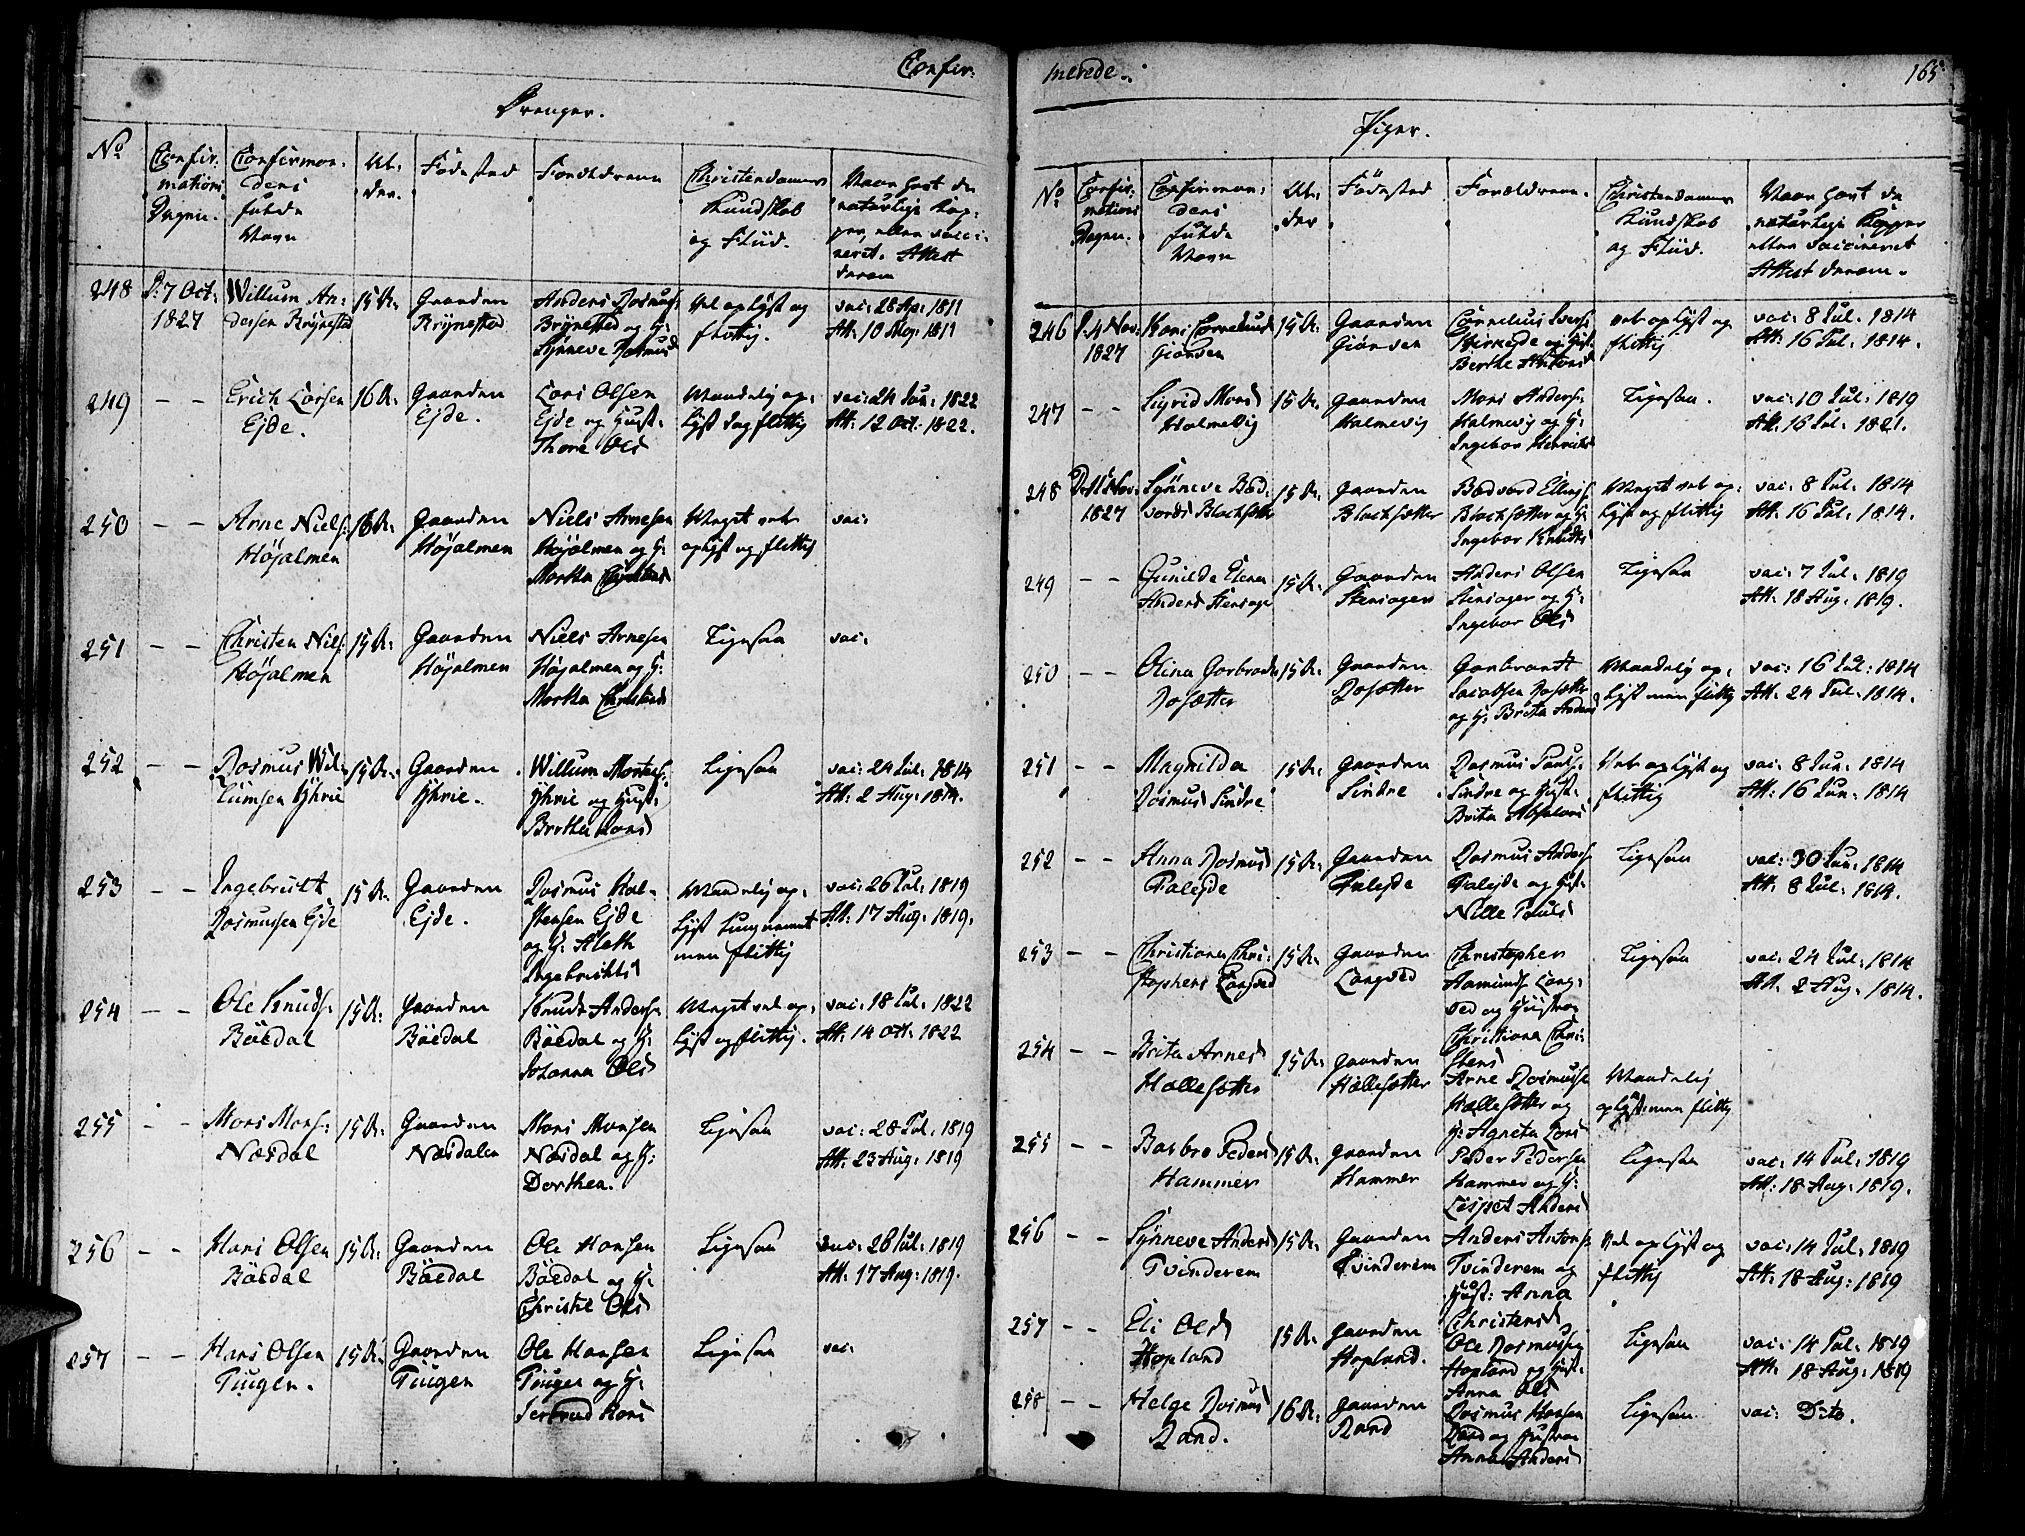 Confir-
Drenger.
No
Confir:
mations
Dagen.
Confirman-
dens
fulde
Navn
Al-
der.
Födested
Forældrene
Christendoms
Kundskab
og Fliid.
Naar hast de
naturlige Kop-
per, eller vacci-
neret. Attest
derom
248
D: 7 Oct:
1827
Willum An-
dersen Brÿnestad
15 A:
Gaarden
Brÿnestad
Anders Rasmus:
Brÿnested og H:
Sÿnneve Rasmusd
Vel oplÿst og
flittig.
vac: 28 Ap: 1811
Att: 10 Aug: 1811
249
– –
Erich Larsen
Ejde.
16 A:
Gaarden
Ejde.
Lars Olsen
Ejde og Hust:
Thore Olsd
Maadelig op-
lÿst dog flittig
vac: 24 Jun: 1822
Att: 12 Oct. 1822.
250
– –
Arne Niels:
Höjalmen
16 A:
Gaarden
Höjalmen
Niels Arnesen
Höjalmen og H:
Martha Christensd
Meget vel
oplÿst og flittig
vac:
251
– –
Christen Niels:
Höjalmen
15 A:
Gaarden
Höjalmen
Niels Arnesen
Höjalmen og H:
Martha Christensd
Ligesaa
vac:
252
– –
Rasmus Wil-
lumsen Hjhrie
15 A:
Gaarden
Hjhrie.
Willum Mortens:
Hjhrie og Hust:
Brethe Larsd
Ligesaa
vac: 24 Jul: 1814
Att: 2 Aug: 1814.
253
– –
Ingebrigt
Rasmusen Ejde
15 A:
Gaarden
Ejde.
Rasmus Hal-
stensen Ejde
og H: Aleth
Ingebrichtsd
Maadelig op-
lÿst tungnemet
men flittig
vac: 26 Jul: 1819
Att: 17 Aug: 1819.
254
– –
Ole Knuds:
Böedal
15 A:
Gaarden
Böedal
Knudt Anders:
Böedal og H:
Johanna Olsd
Meget vel op-
lÿst og flittig.
vac: 18 Jul: 1822
Att: 14 Oct. 1822
255
– –
Mons Mons:
Næsdal
15 A:
Gaarden
Næsdalen
Mons Monsen
Næsdal og H:
Dorthea.
Ligesaa
vac: 28 Jul: 1819
Att: 23 Aug: 1819
256
– –
Hans Olsen
Böedal
15 A:
Gaarden
Böedal
Ole Hansen
Böedal og H:
Christi Olsd
Ligesaa
vac: 28 Jul: 1819
Att: 17 Aug: 1819.
257
– –
Hans Olsen
Tiugen.
15 A:
Gaarden
Tiugen
Ole Hansen
Tiugen og H:
Gertrud Hansd
Ligesaa
vac:
merede.
165
Piger.
No
Confir-
mations
Dagen.
Confirman-
dens
fulde
Navn
Al-
der
Födested
Forældrene.
Christendoms
Kundskab
og Fliid.
Naar hast de
naturlige Kopper
eller vaccineret
Attest derom.
246
D. 4 Nov:
1827
Kari Corneliusd
Giörven
15 A:
Gaarden
Giörven
Cornelius Ivers:
og Hust:
Berthe Antonsd
vel oplÿst og
flittig
vac: 8 Jul: 1814
Att: 16 Jul: 1814.
247
– –
Sigrid Monsd
Holmevig
15 A:
Gaarden
Holmevig
Mons Anders:
Holmevig og H:
Ingebor Henricksd
Ligesaa.
vac: 10 Jul: 1819
Att: 16 Jul: 1821.
248
D. 11 Nov:
1827
Sÿnneve Bød-
vards Blachsætter
15 A:
Gaarden
Blachsætter
Bødvard Ellings:
Blachsætter og H:
Ingebor Knudsd
Meget vel op-
lÿst og flittig
vac: 8 Jul: 1814
Att: 16 Jul: 1814.
249
– –
Gunilde Elena
Andersd Stensager
15 A:
Gaarden
Stensager
Anders Olsen
Stensager og H:
Ingebor Olsd
Ligesaa
vac: 7 Jul: 1819
Att: 18 Aug: 1819.
250
– –
Olina Garbrands
Rosætter
15 A:
Gaarden
Rosætter
Garbrandt
Jacobsen Rosætter
og H: Brita Andersd
Maadelig op-
lÿst men flittig
vac: 16 Jul: 1814
Att: 24 Jul: 1814.
251
– –
Magnilda
Rasmusd Sindre
15 A:
Gaarden
Sindre
Rasmus Pauls:
Sindre og Hust:
Brita Absalonsd
Vel oplÿst og
flittig
vac: 8 Jun: 1814
Att: 16 Jun: 1814
252
– –
Anna Rasmusd
Falejde
15 A:
Gaarden
Falejde
Rasmus Anders:
Falejde og Hust:
Nille Paulsd
Ligesaa
vac: 30 Jun: 1814
Att: 8 Jul: 1814.
253
– –
Christiana Chri-
stophers Langsed
15 A:
Gaarden
Langsed
Christopher
Aamunds: Lang-
sed og Hustroe
Christiana Chri-
stensd
Ligesaa
vac: 24 Jul: 1814
Att. 2 Aug: 1814.
254
– –
Brita Arnesd
Hællesætter
15 A:
Gaarden
Hællesætter
Arne Rasmusen
Hællesætter og
H: Agneta Larsd
Maadelig
oplÿst men flittig
255
– –
Barbro Pedersd
Hammer
15 A:
Gaarden
Hammer
Peder Pedersen
Hammer og H:
Lispet Andersd
Ligesaa
vac: 14 Jul: 1819
Att: 18 Aug: 1819.
256
– –
Sÿnneve Andersd
Tvinderem
15 A:
Gaarden
Tvinderem
Anders Antons:
Tvinderem og
Hust: Anna
Christensd
Vel oplÿst og
flittig
vac: 14 Jul: 1819
Att: 18 Aug: 1819
257
– –
Eli Olsd
Hopland
15 A:
Gaarden
Hopland.
Ole Rasmusen
Hopland og Hust:
Anna Olsd
Ligesaa
vac: 14 Jul: 1819
Att: 18 Aug: 1819
258
– –
Helge Rasmusd
Rand.
16 A:
Gaarden
Rand
Rasmus Hansen
Rand og Hustroe
Anna Andersd
Ligesaa
vac: Dito.